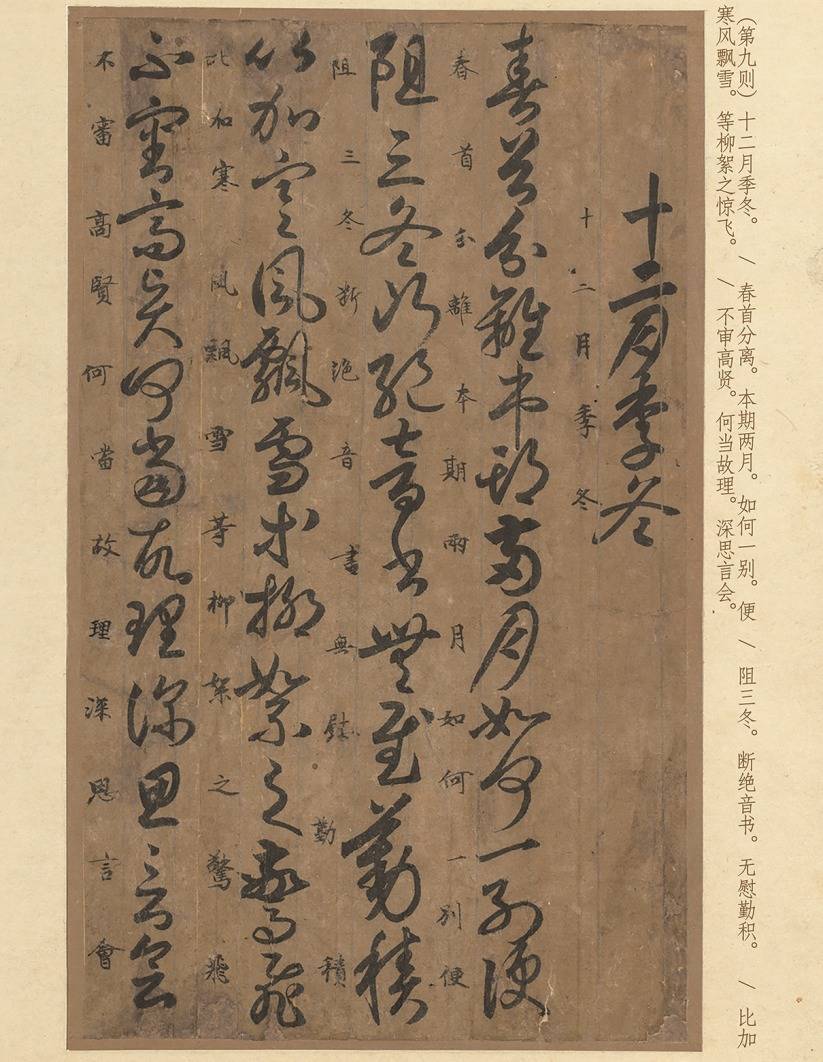 （第九则）十二月季冬。\春首分离。本期两月。如何一别。便\阻三冬。断绝音书。无慰勤积。\比加
寒风飘雪。等柳絮之惊飞。\不审高贤。何当故理。深思言会。
十二月季冬
十二月季冬
春首分離本期兩月如何一別便
春首分離本期兩月如何一別便
阻三冬斷絕音書無慰勤積
阻三冬斷絕音書無慰勤積
比加寒風飄雪等柳絮之驚飛
比加寒風飄雪等柳絮之驚飛
不審高賢何當故理深思言會
不審高賢何當故理深思言會